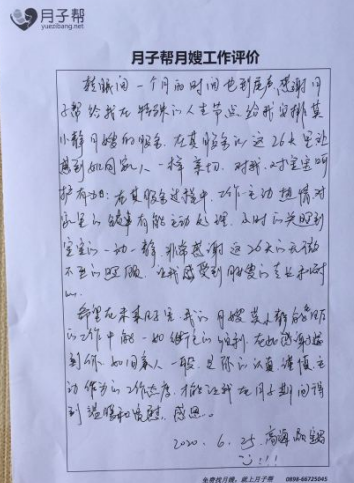 月子帮
yuezibang.net
月子帮月嫂工作评价
转眼间一个月的时间也到尾声,感谢月
子帮给我在特殊的人生节点给我安排莫
小静月嫂的服务。在其服务的这26天里让
感到如同家人一样亲切,对我、对宝宝呵
护有加;在其服务过程中,工作主动热情对
宝宝的 有能主动处理,及时的关照到
宝宝的一动一静,非常感谢这26天的无微
不至的照顾,让我感受到月嫂的专业和
希望在未来好宝我们月嫂莫小静能
的工作中能一如继往的 ,在
到你如同家人一般,是你的认真谨慎主
动 的工作态度,才能让我在月子期间得
到温暖和 ,感恩。
2020.6.25.
免费找月嫂,就上月子帮 0898-66725045